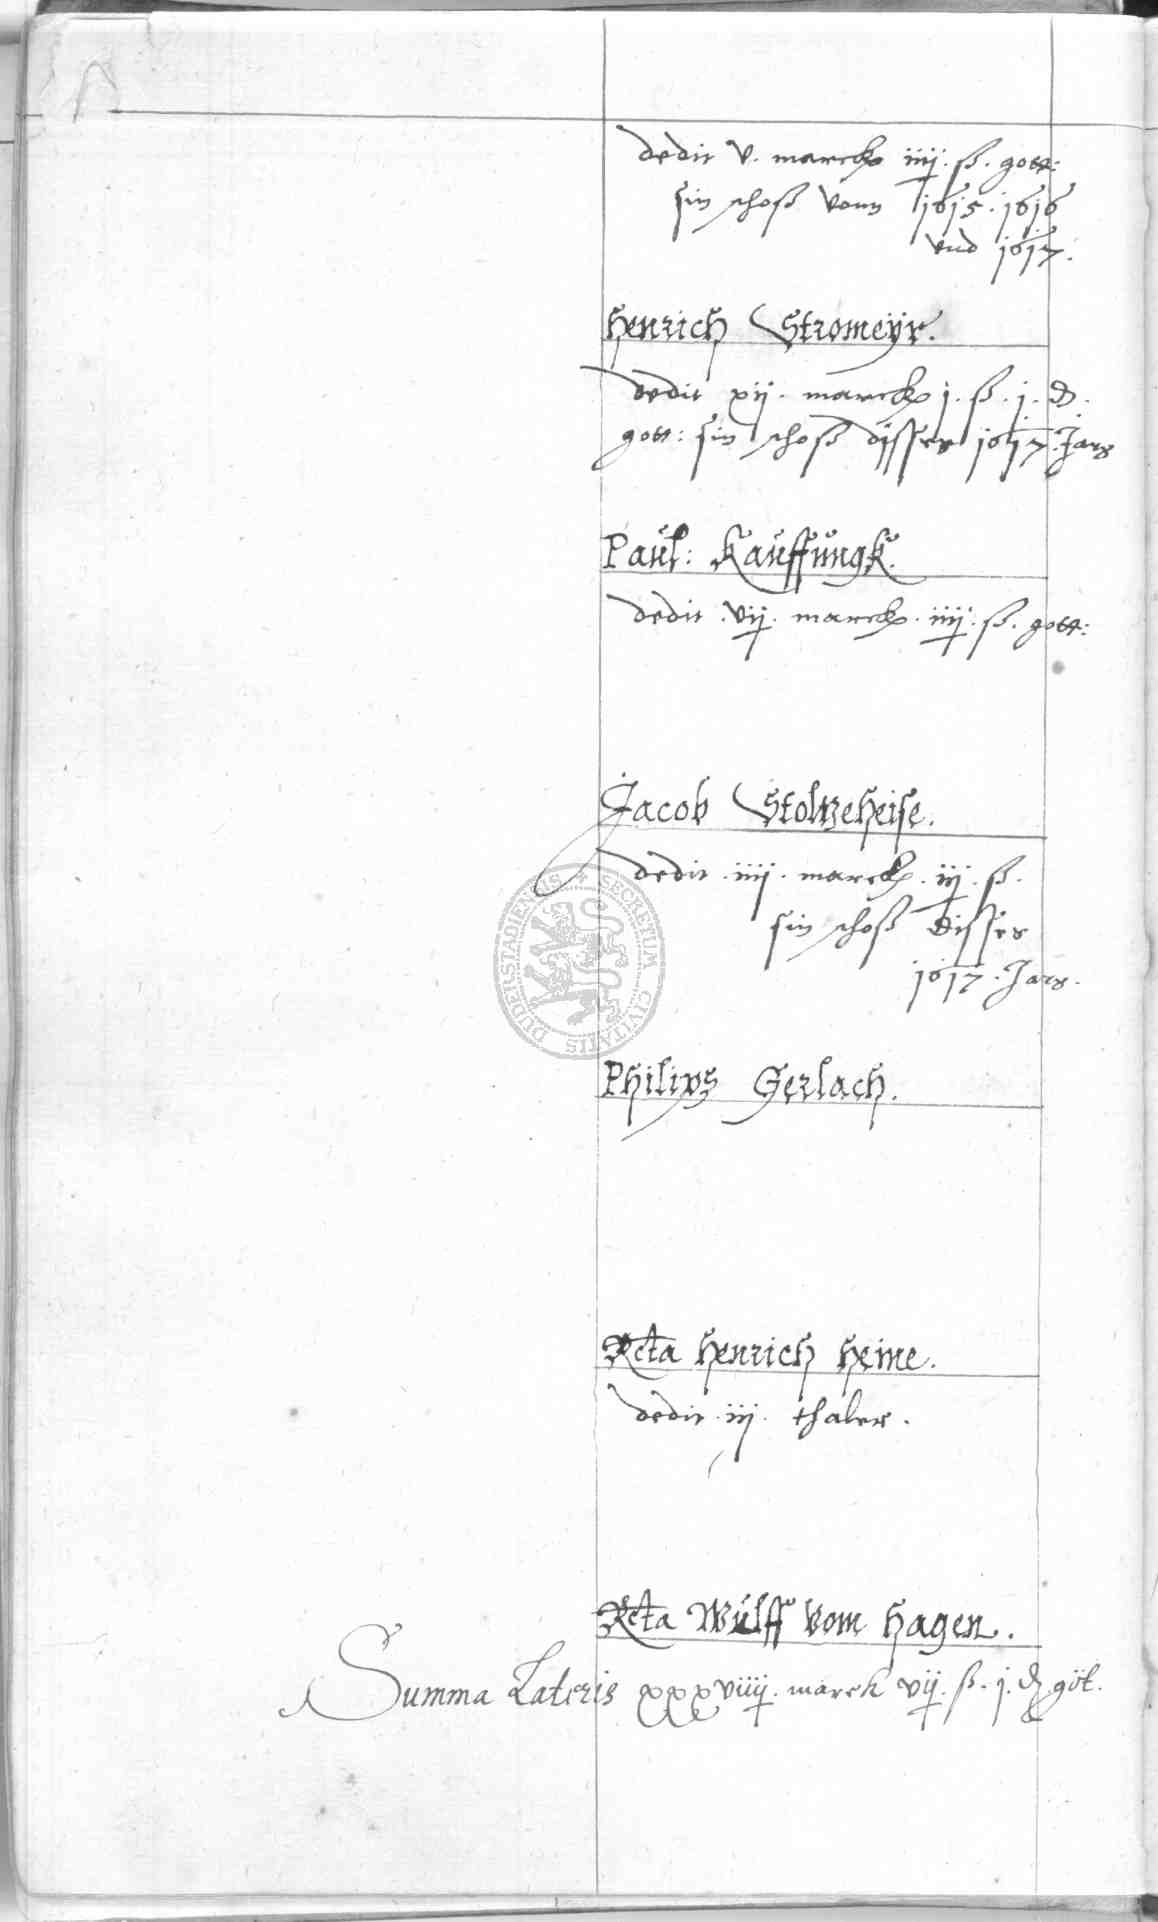 dedit v. marck iiij. ß. gott:
sin schoß vonn 1615. 1616
vnd 1617.
Henrich Stromeÿr.
dedit xij. marck j. ß. j. d.
gott: sin schoß disses 1617. Jars
Paul: Kauffungk.
dedit. vij. marck. iiij. ß. gott:
Jacob Stoltzeheise.
dedit. iiij. marck. iij. ß.
sin schoß disses
1617. Jars.
SECRETUM CIVITATIS DUDERSTADIENSIS
Philips Gerlach.
Rcta Henrich Heine.
dedit. iij. thaler.
Rcta Wulff vom Hagen.
Summa Lateris xxxviiij. marck vij. ß. j. d gôt.